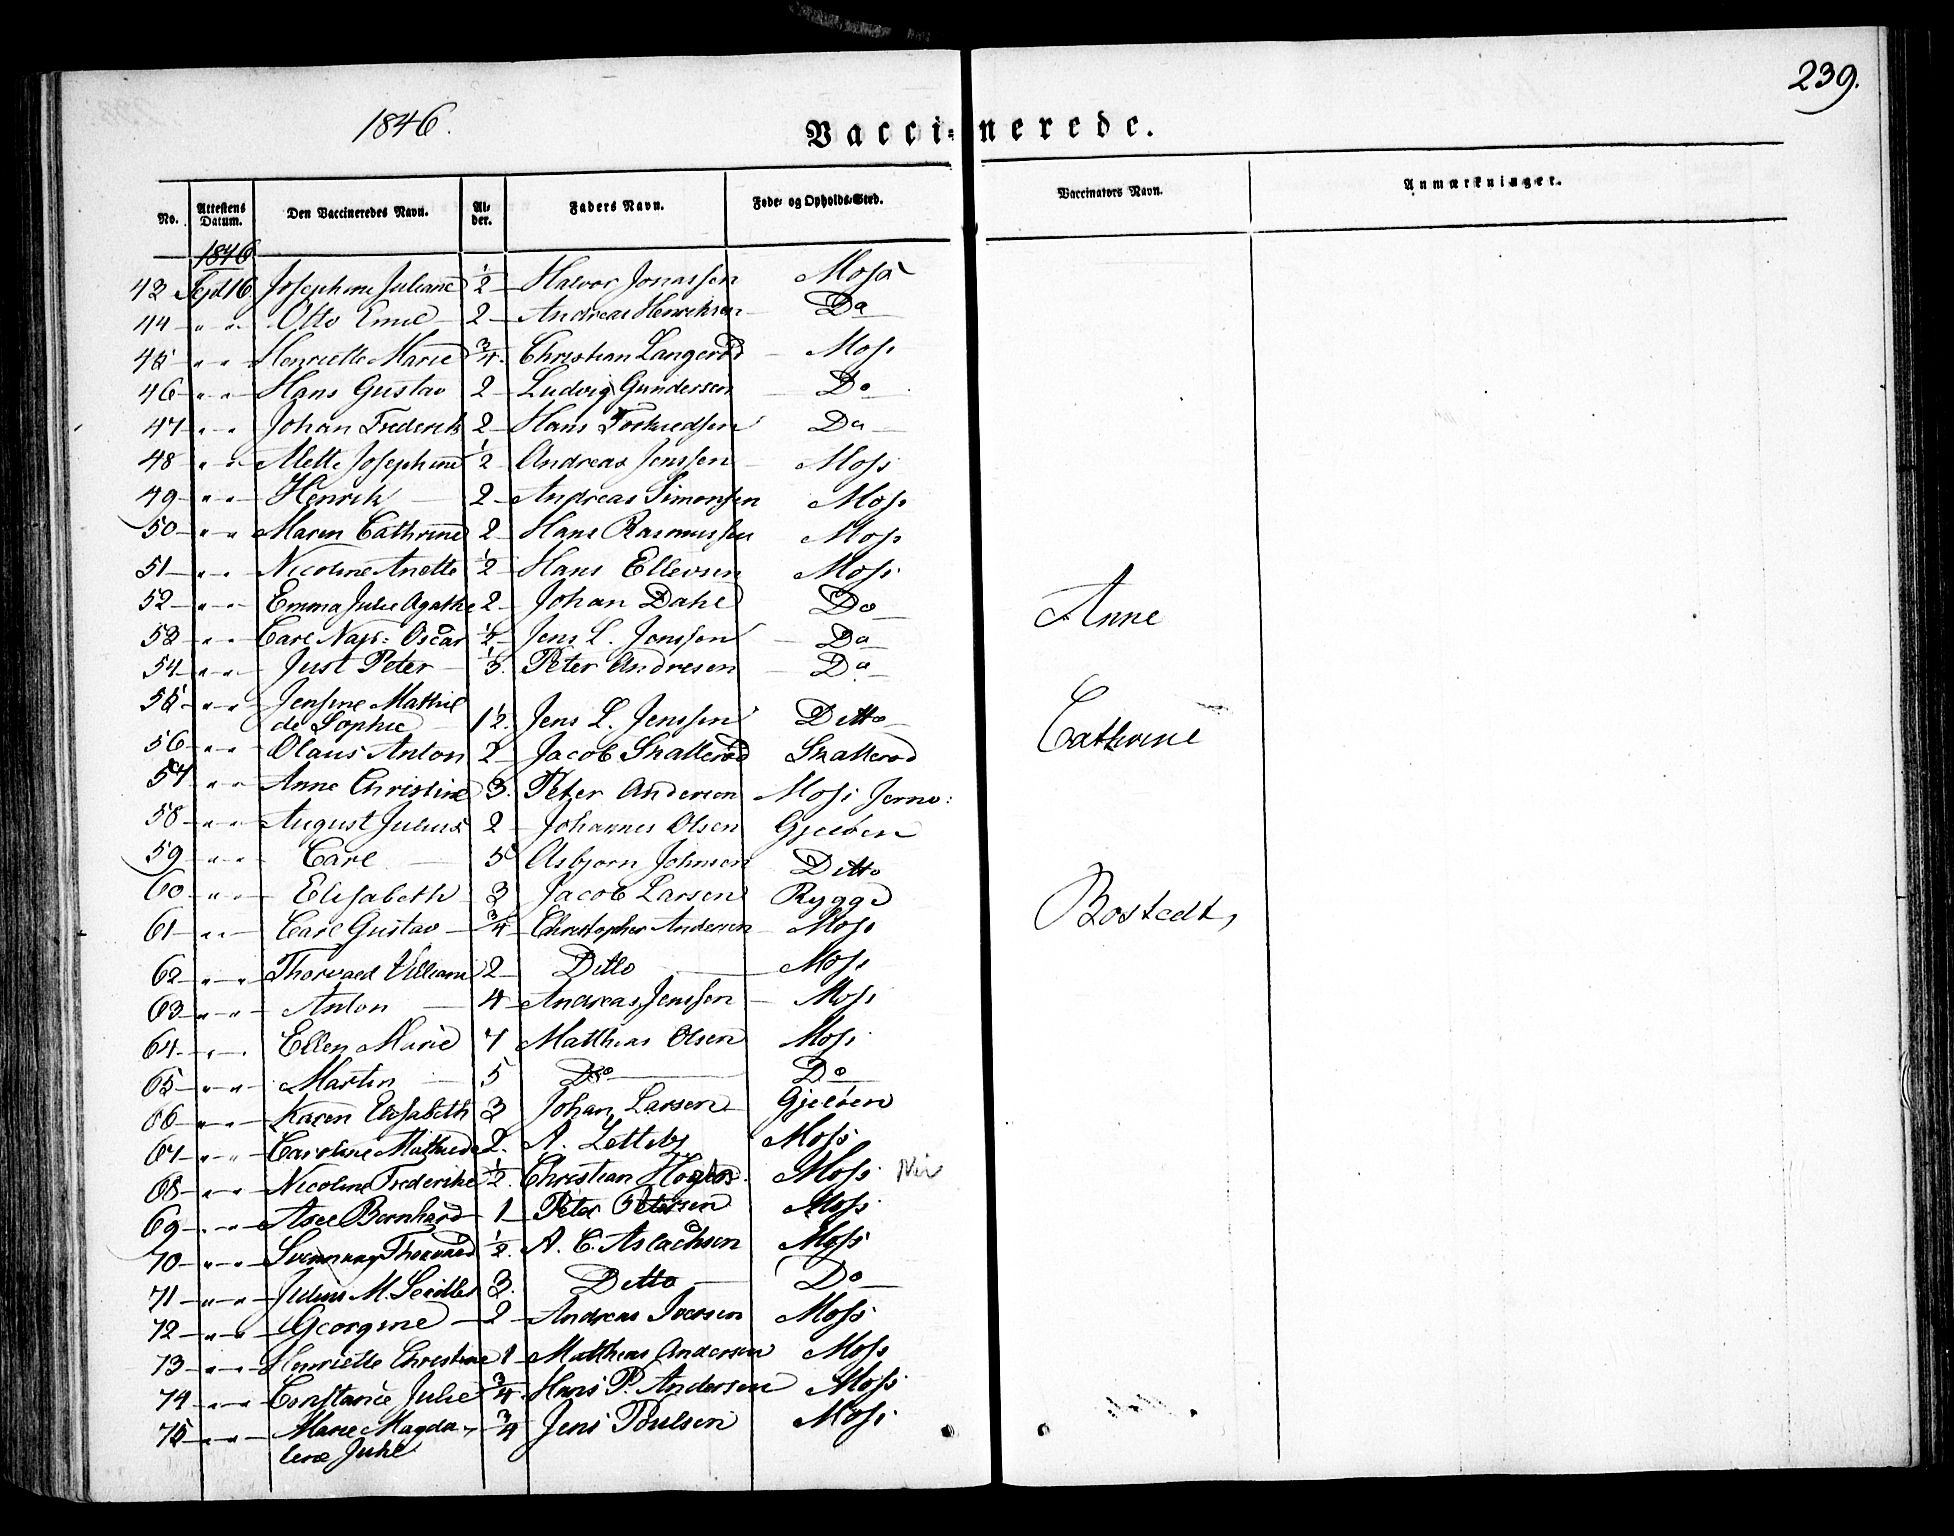 239.
1846.
Vacci-nerede.
No. Attestens Datum. Den Vaccineredes Navn. Al-der. Faders Navn. Føde- og Opholds-Sted. Vaccinators Navn. Anmærkninger.
1846
43 Sept 16 Josephine Juliane 1/2 Halvor Jonassen Moss
44 " " Otto Emil 2 Andreas Henriksen Do
45 " " Henriette Marie 3/4 Christian Langerød Moss
46 " " Hans Gustav 2 Ludvig Gundersen Do
47 " " Johan Frederik 2 Hans Do
48 " " Mette Josephine 1/2 Andreas Jenssen Moss
49 " " Henrik 2 Andreas Simonsen Moss
50 " " Maren Cathrine 2 Hans Rasmussen Moss
51 " " Nicoline Anette 1/2 Hans Ellevsen Moss
52 " " Emma Julie Agathe 2 Johan Dahl Do Anne
53 " " Carl Nap: Oscar 1/2 Jens L. Jenssen Do
54 " " Just Peter Peter Andresen Do
55 " " Jensine Mathil
de Sophie 1 1/2 Jens L. Jenssen Ditto
56 " " Olaus Anton 2 Jacob Skallerød Skallerød Cathrine
57 " " Anne Christine 3 Peter Andersen Moss Jernv:
58 " " August Julius 2 Johannes Olsen Gjeløen
59 " " Carl 5 Asbjørn Johnsen Ditto
60 " " Elisabeth 3 Jacob Larsen Rygge
61 " " Carl Gustav 3/4 Christopher Andersen Moss Bostedt,
62 " " Thorvald Villiam 2 Ditto Moss
63 " " Anton 4 Andreas Jenssen Moss
64 " " Ellen Marie 7 Matthias Olsen Moss
65 " " Martin 5 Do Do
66 " " Karen Elisabeth 3 Johan Larsen Gjeløen
67 " " Caroline Mathilde 2 A. Moss
68 " " Nicoline Frederike 1/2 Christian Moss
69 " " Axel Bernhard 1 Peter Petersen Moss
70 " " Thorvald 1/2 A. C. Aslachsen Moss
71 " " Julius M. Seidler 3 Ditto Do
72 " " Georgine 2 Andreas Iversen Moss
73 " " Henriette Christine 1 Matthias Andersen Moss
74 " " Constance Julie 3/4 Hans P. Andersen Moss
75 " " Marie Magda-
lene Juhl 3/4 Jens Poulsen Moss